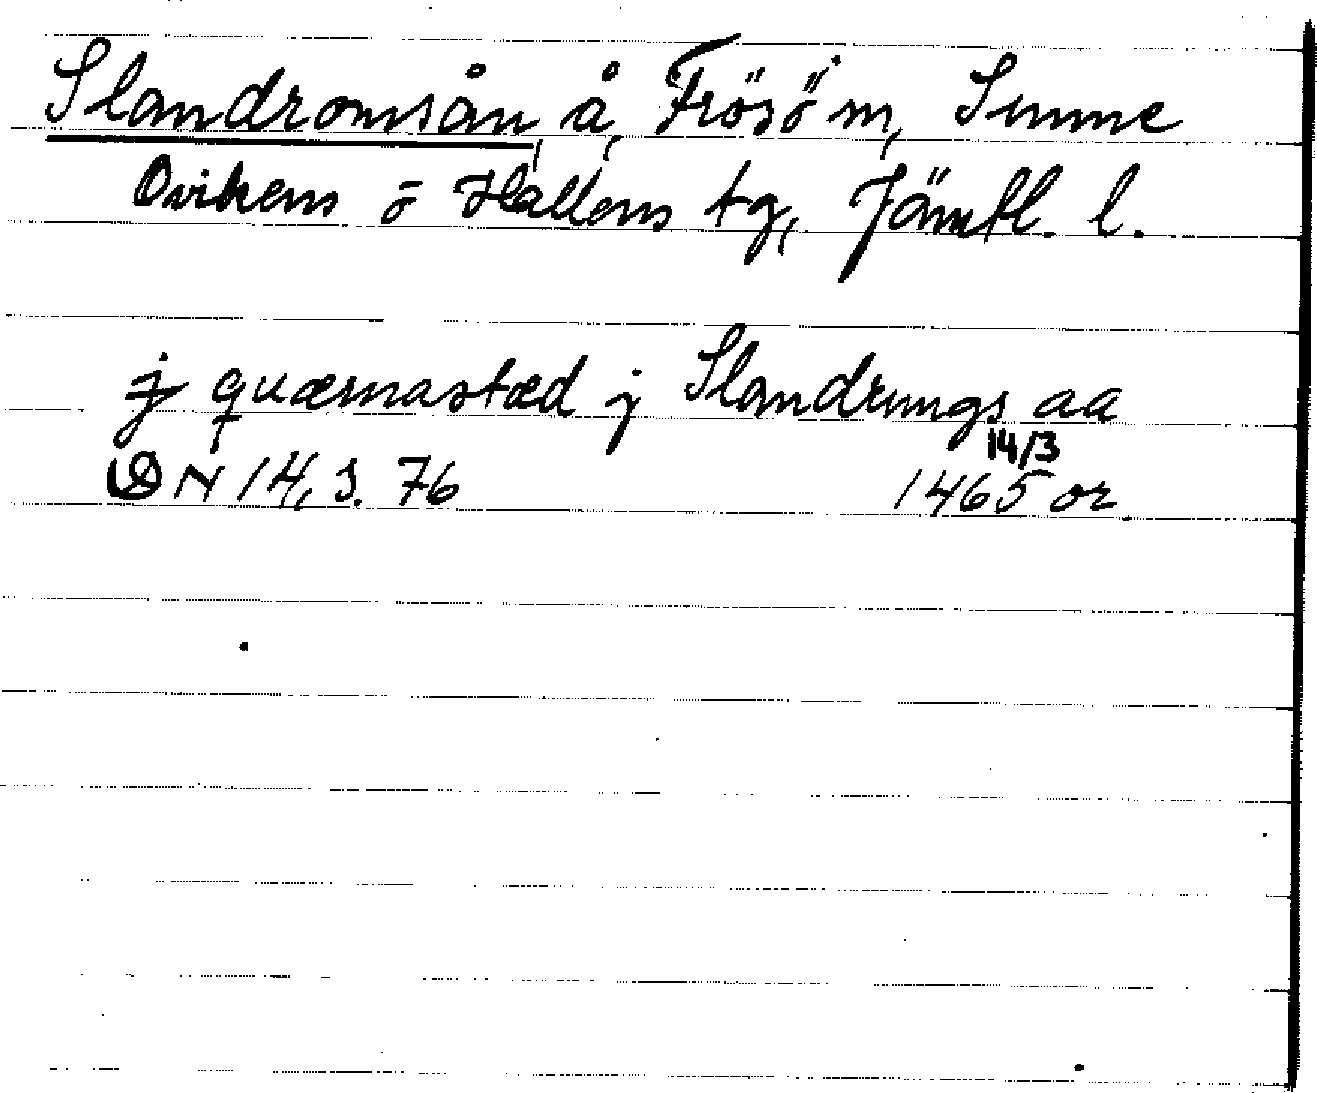 Slandromsån, å, Frösö m, Sunne
Ovikens o Hallens tg, Jämtl. l.
j quærnastæd j Slandrungs aa
14/3
DN 14, s. 76 1465 or